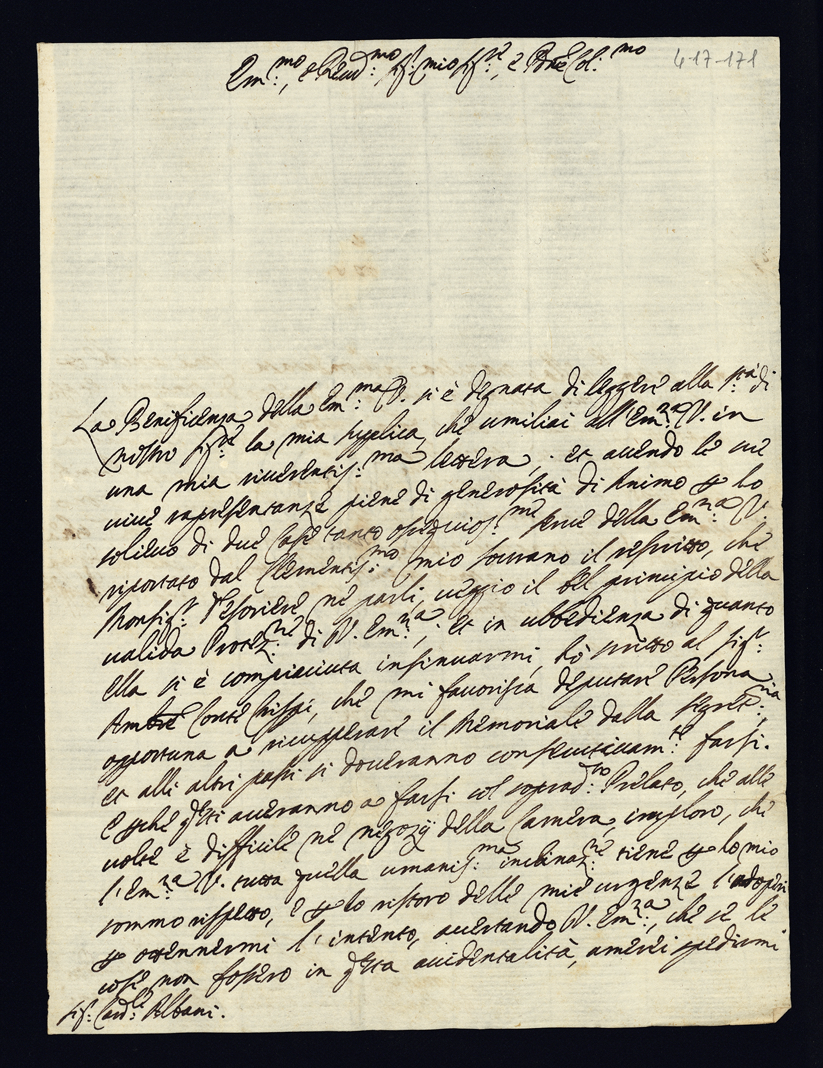 Em.mo, e Reud.mo Sig: mio Sig.re, e Pr̃one Col.mo
4-17-171
La Beneficenza della Em.ma V. si è degnata di leggere alla S.tà di
nostro Sig.re la mia supplica, che umiliai all'Em.za V. in
una mia riuerentis.ma lettera, et auendo le sue
uiue rapresentanze piene di generosità di Animo p lo
solieuo di due Case tanto ossequios.me serue della Em.za V.
riportato dal Clementis.mo mio sourano il rescritto, che
Monsig.r Tesoriere ne parli, ueggio il bel principio della
ualida Protez.ne di V. Em.za; et in ubbedienza di quanto
ella si è compiaciuta insinuarmi, hò scritto al Sig.r
Amb.re Conte Crispi, che mi fauorisca deputare Persona
opportuna a ricupperare il Memoriale dalla Segret.ria,
et alli altri passi si doueranno consecutiuam.te farsi.
E pchè q̃sti aueranno a farsi col soprad.to Prelato, che alle
uolte è difficile ne negozÿ della Camera, imploro, che
l'Em.za V. tutta quella umanis.ma inclinaz.ne tiene p lo mio
sommo rispetto, e p lo ristoro delle mie urgenze l'adoperi
p ottennermi l'intento, auertendo V. Em.za, che se le
cose non fossero in q̃sta accidentalità, amerei spedirmi
Sig: Card.le Albani.